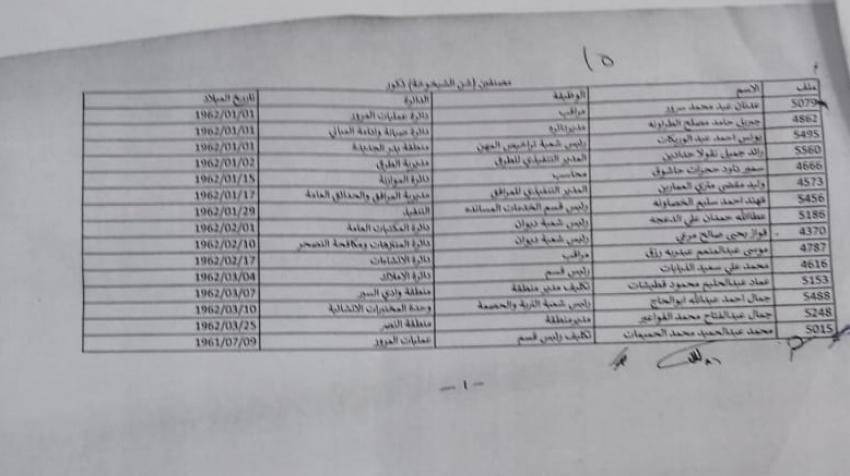 ١٥
مصنفين (سن الشيخوخة) ذكور
ملف الاسم الوظيفة الدائرة تاريخ الميلاد
5079 عدنان عبد محمد سرور مراقب دائرة عمليات المرور 1962/01/01
4862 جبريل حامد مصلح الطراونه مدير دائره دائرة صيانة وادامة المباني 1962/01/01
5495 يونس احمد عبد الوريكات رئيس شعبة تراخيص المهن منطقة بدر الجديدة 1962/01/01
5560 رائد جميل نقولا حدادين المدير التنفيذي للطرق مديرية الطرق 1962/01/02
4666 سمير داود محاسب دائرة الموازنة 1962/01/15
4573 وليد مفضي العمارين المدير التنفيذي للمرافق مديرية المرافق والحدائق العامة 1962/01/17
5456 فهند احمد سليم الخصاونه رئيس قسم الخدمات المسانده التنفيذ 1962/01/29
5186 عطاالله حمدان علي الدعجه رئيس شعبة ديوان دائرة المكتبات العامة 1962/02/01
4370 فواز يحيى صالح مرعي رئيس شعبة ديوان دائرة المتنزهات ومكافحة التصحر 1962/02/10
4787 موسى عبدالمنعم عبدربه رزق مراقب دائرة الانشاءات 1962/02/17
4616 محمد علي سعيد الذيابات رئيس قسم دائرة الاملاك 1962/03/04
5153 عماد عبدالحليم محمود قطيشات تكليف مدير منطقة منطقة وادي السير 1962/03/07
5488 جمال احمد عبدالله ابوالحاج رئيس شعبة التربة والحصمة وحدة المختبرات الانشائية 1962/03/10
5248 جمال عبدالفتاح محمد الفواعير مدير منطقة منطقة النصر 1962/03/25
5015 محمد عبدالحميد محمد الحميمات تكليف رئيس قسم عمليات المرور 1961/07/09
-١-